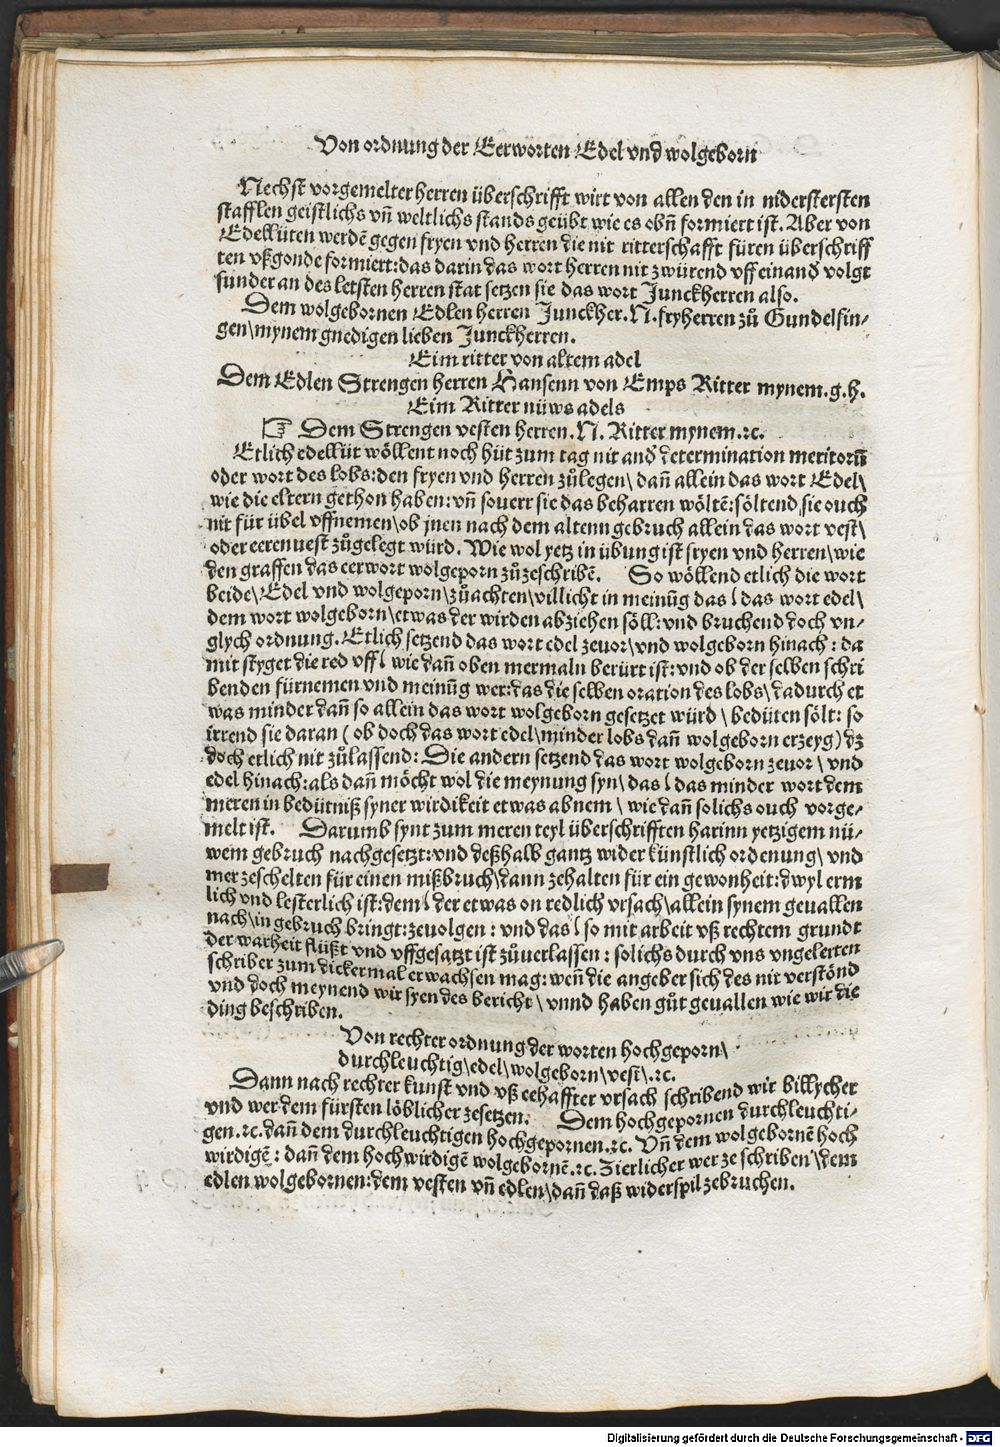 Von ordnung der Eerworten Edel vnd wolgeborn
Nechst vorgemelter herren überschrifft wirt von allen den in niderstersten
stafflen geistlichs vñ weltlichs stands geübt wie es obñ formiert ist. Aber von
Edellüten werdē gegen fryen vnd herren die nit ritterschafft füren überschriff
ten vßgonde formiert: das darin das wort herren nit zwürend vff einand̕ volgt
sunder an des letsten herren stat setzen sie das wort Junckherren also.
Dem wolgebornen Edlen herren Junckher. N. fryherren zů Gundelfin⸗
gen\ mynem gnedigen lieben Junckherren.
Eim ritter von altem adel
Dem Edlen Strengen herren Hansenn von Emps Ritter mynem. g. h.
Eim Ritter nüws adels
☞ Dem Strengen vesten herren. N. Ritter mynem. ꝛc.
Etlich edellüt wöllent noch hüt zum tag nit and̕ determination meritorū
oder wort des lobs: den fryen vnd herren zůlegen\ dañ allein das wort Edel\
wie die eltern gethon haben: vñ souerr sie das beharren wöltē: söltend sie ouch
nit für übel vffnemen\ ob jnen nach dem altenn gebruch allein das wort vest\
oder eerenuest zůgelegt würd. Wie wol yetz in übung ist fryen vnd herren\ wie
den graffen das eerwort wolgeporn zůzeschribē. So wöllend etlich die wort
beide\ Edel vnd wolgeporn\ zůachten\ villicht in meinūg das ( das wort edel\
dem wort wolgeborn\ etwas der wirden abziehen söll: vnd bruchend doch vn⸗
glych ordnung. Etlich setzend das wort edel zeuor\ vnd wolgeborn hinach: da
mit styget die red vff ( wie dañ oben mermaln berürt ist: vnd ob der selben schri
benden fürnemen vnd meinūg wer: das die selben oration des lobs\ dadurch et
was minder dañ so allein das wort wolgeborn gesetzet würd \ bedüten sölt: so
irrend sie daran ( ob doch das wort edel\ minder lobs dañ wolgeborn erzeyg) dz
doch etlich nit zůlassend: Die andern setzend das wort wolgeborn zeuor \ vnd
edel hinach: als dañ möcht wol die meynung syn\ das ( das minder wort dem
meren in bedütniß syner wirdikeit etwas abnem \ wie dañ solichs ouch vorge⸗
melt ist. Darumb synt zum meren teyl überschrifften harinn yetzigem nü⸗
wem gebruch nachgesetzt: vnd deßhalb gantz wider künstlich ordenung\ vnd
mer zeschelten für einen mißbruch\ dann zehalten für ein gewonheit: dwyl erm
lich vnd lesterlich ist: dem ( der etwas on redlich vrsach\ allein synem geuallen
nach\ in gebruch bringt: zeuolgen: vnd das ( so mit arbeit vß rechtem grundt
der warheit flüßt vnd vffgesatzt ist zůuerlassen: solichs durch vns vngelerten
schriber zum dickermal erwachsen mag: weñ die angeber sich des nit verstönd
vnd doch meynend wir syen des bericht \ vnnd haben gůt geuallen wie wir die
ding beschriben.
Von rechter ordnung der worten hochgeporn\
durchleuchtig\ edel\ wolgeborn\ vest\. ꝛc.
Dann nach rechter kunst vnd vß eehaffter vrsach schribend wir billycher
vnd wer dem fürsten löblicher zesetzen. Dem hochgepornen durchleuchti⸗
gen. ꝛc. dañ dem durchleuchtigen hochgepornen. ꝛc. Vñ dem wolgebornē hoch
wirdigē: dañ dem hochwirdigē wolgebornē. ꝛc. Zierlicher wer ze schriben\ dem
edlen wolgebornen: dem vesten vñ edlen\ dañ daß widerspil zebruchen.
Digitalisierung gefördert durch die Deutsche Forschungsgemeinschaft - DFG